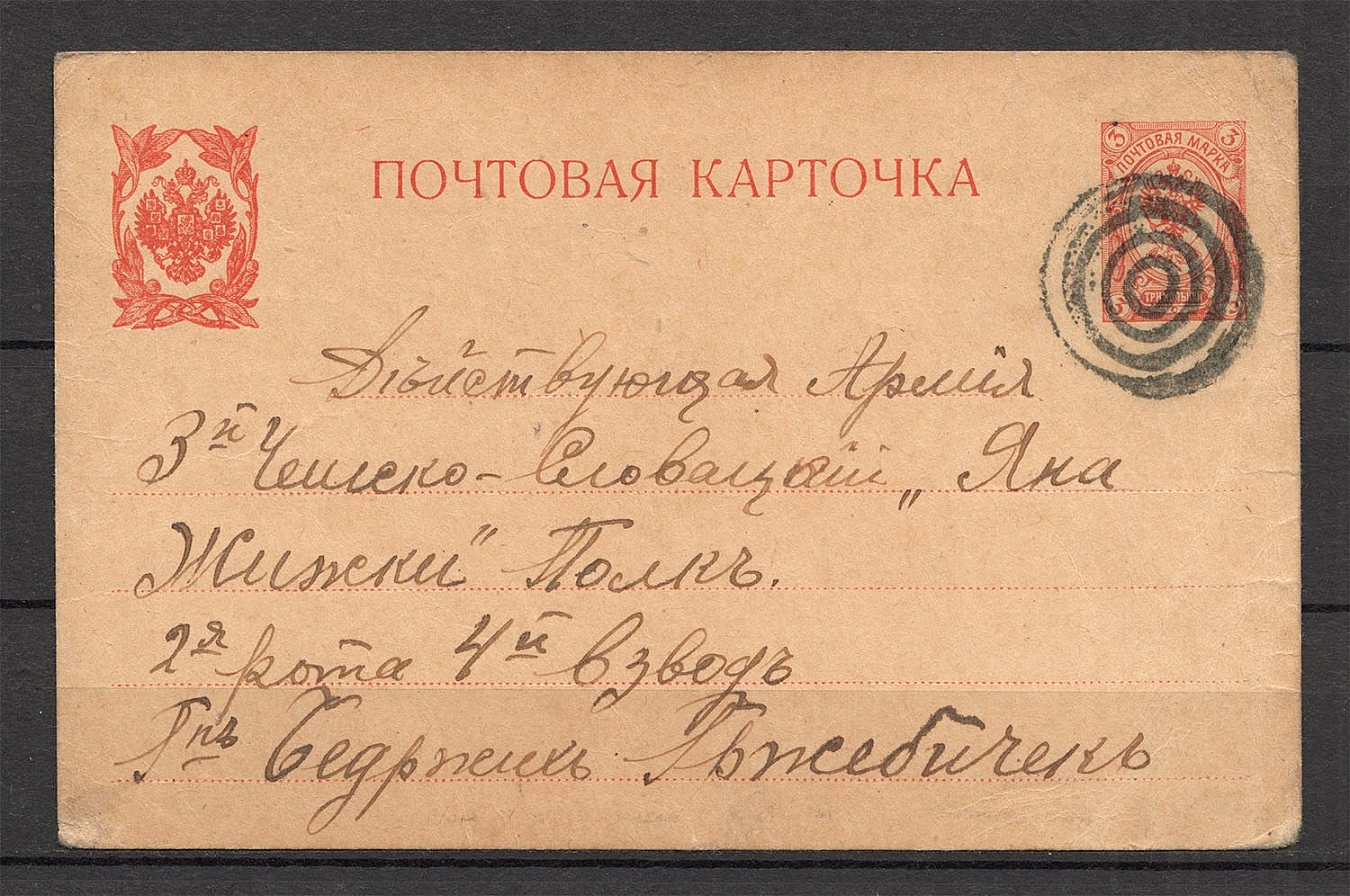 ПОЧТОВАЯ КАРТОЧКА
3 3
ПОЧТОВАЯ МАРКА
Дѣйствующая Армія
3й Чешско-Словацкій „Яна
Жижки" Полкъ.
2я рота 4й взводъ
Гпъ Бедржихъ Гржебичекъ